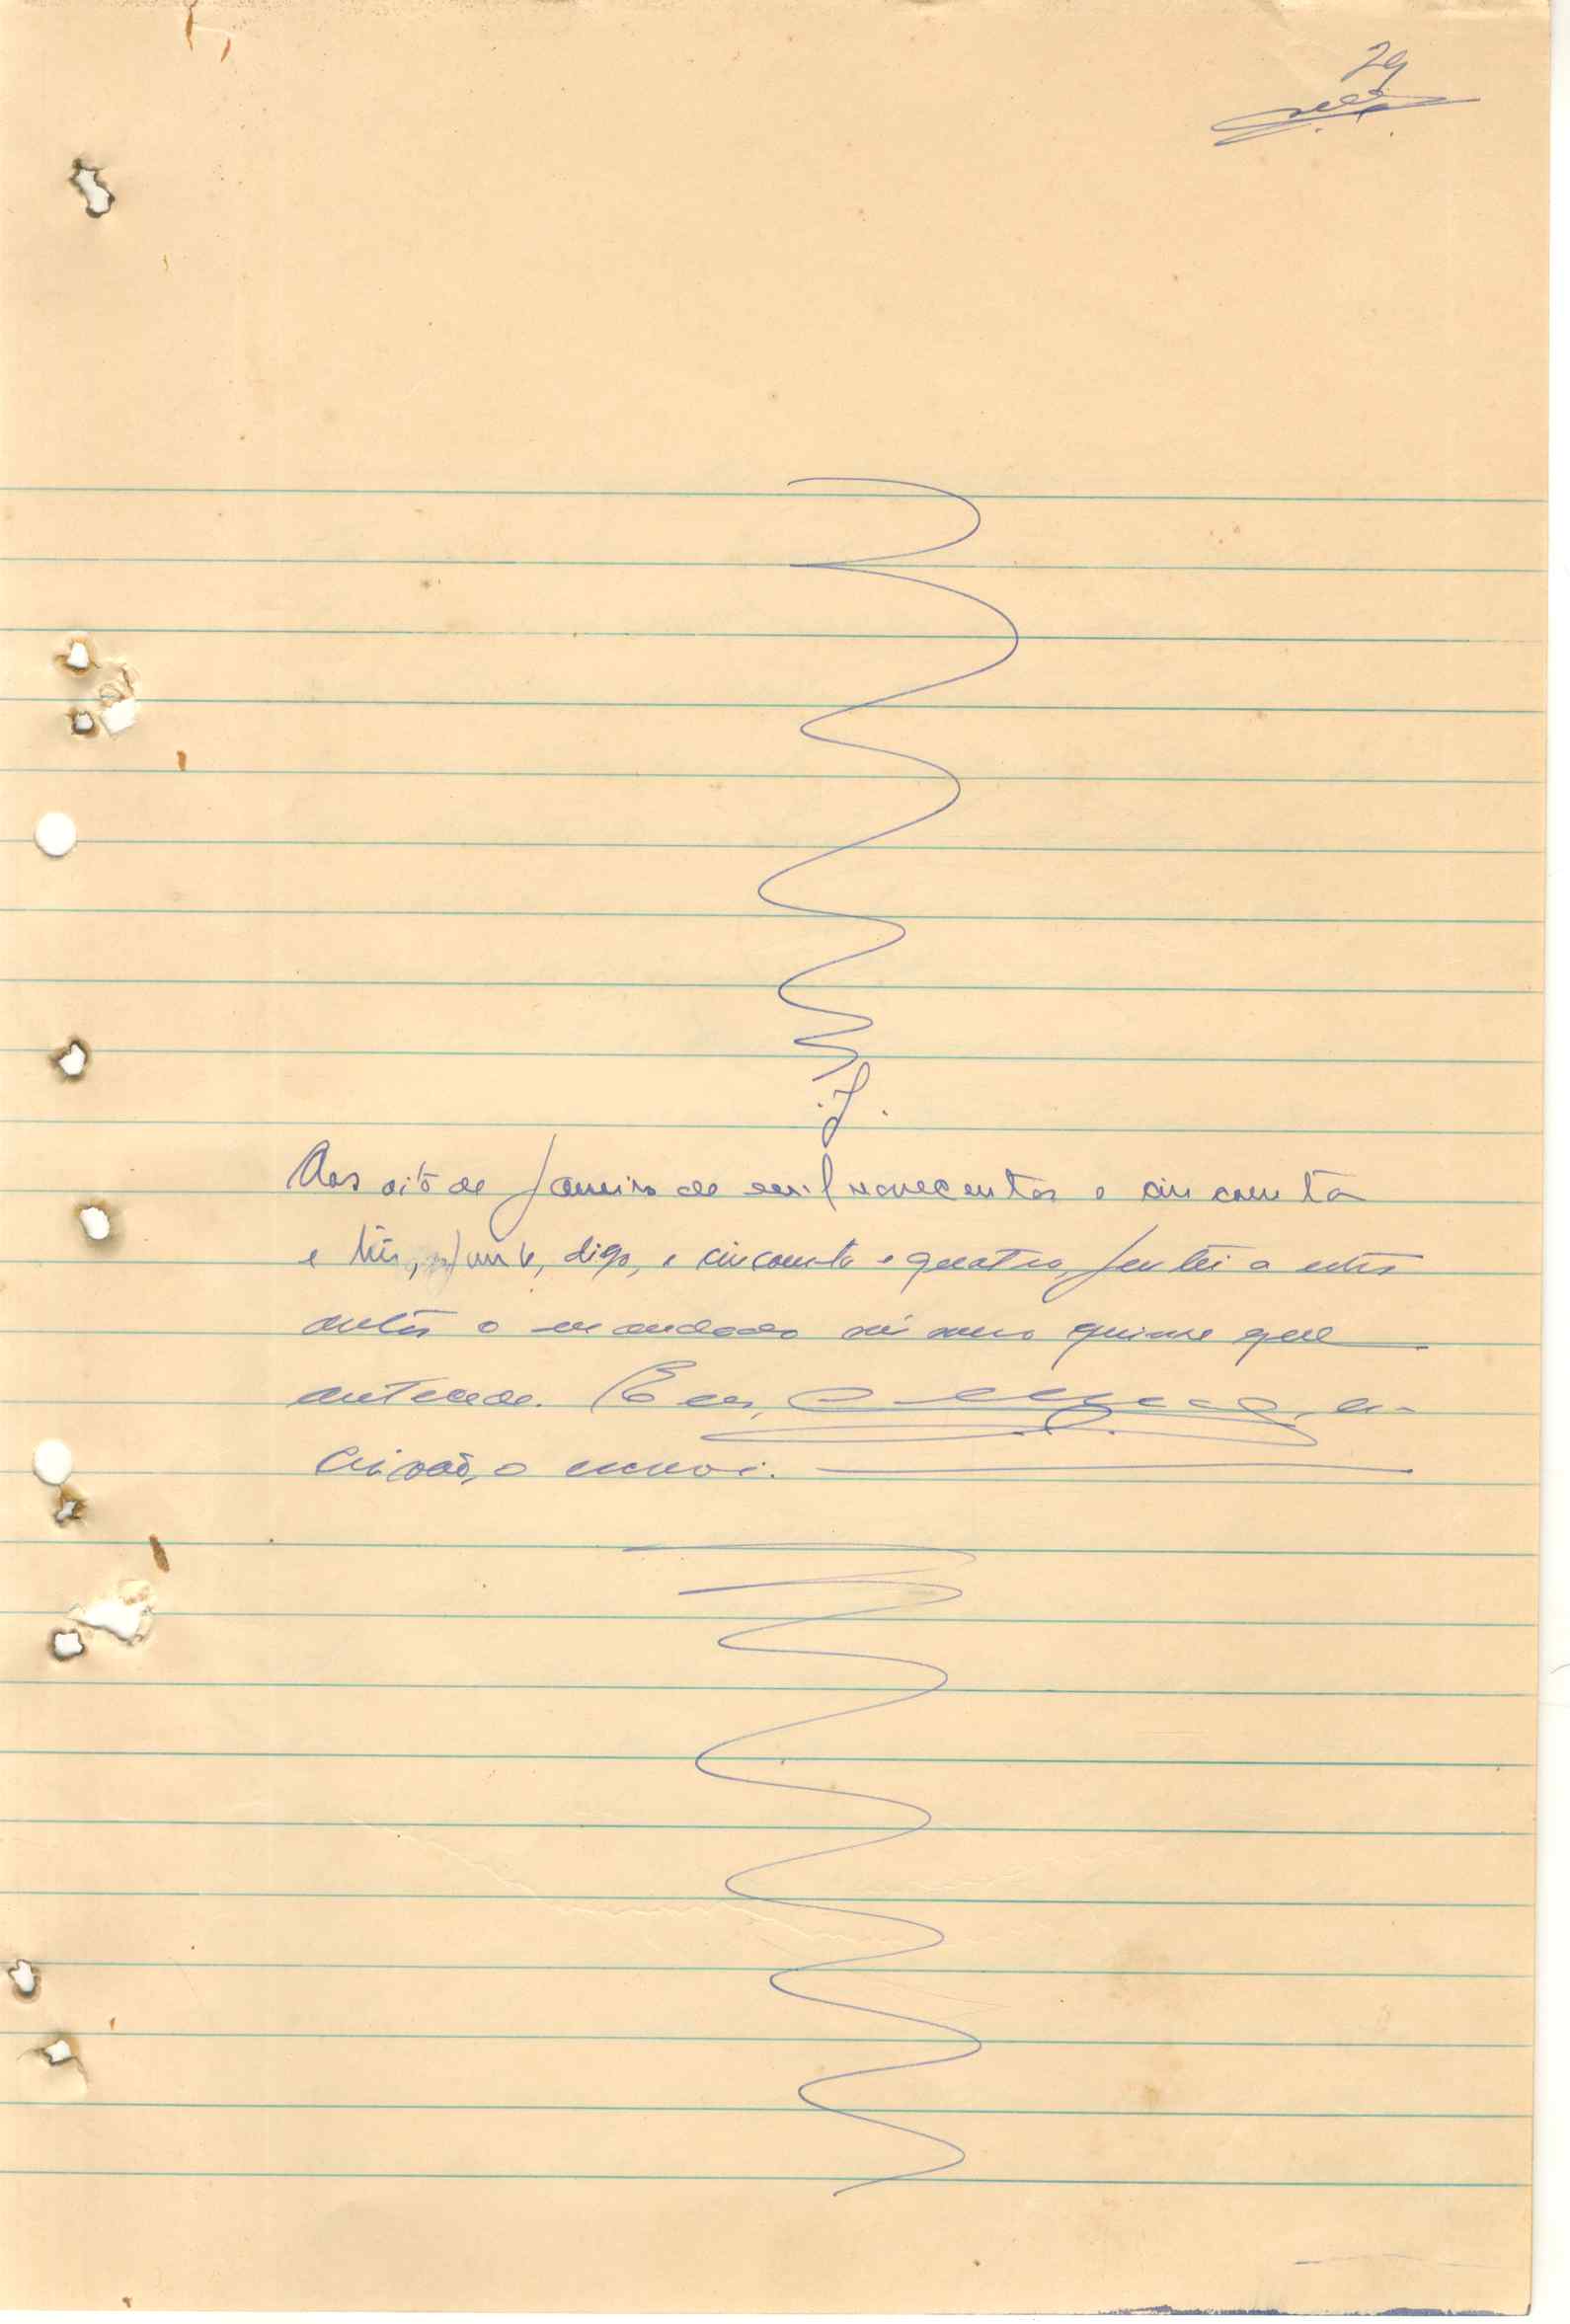 29
.J.
Aos oito de Janeiro de mil novecentos e cincoenta
e três, junte, digo, e cincoenta e quatro, juntei a estes
autos o mandado número quinze que
antecede. Eu, es-
crivão, o escrevi.